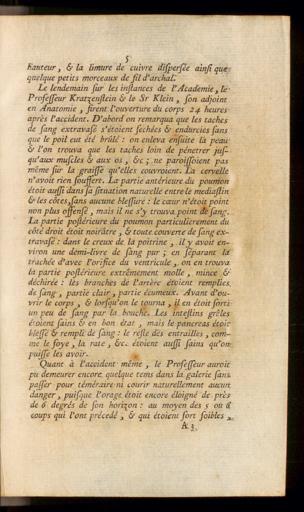 5
hauteur, & la limure de cuivre dispersée ainsi que
quelque petits morceaux de fil d'archal.
Le lendemain sur les instances de l'Academie, le
Professeur Kratzenstein & le Sr Klein, son adjoint
en Anatomie, firent l'ouverture du corps 24 heures
après l'accident. D'abord on remarqua que les taches
de sang extravasé s'étoient sechées & endurcies sans
que le poil eut été brûlé: on enleva ensuite la peau
& l'on trouva que les taches loin de pénétrer jus-
qu'aux muscles & aux os, &c; ne paroissoient pas
même sur la graisse qu'elles couvroient. La cervelle
n'avoit rien souffert. La partie antérieure du poumon
étoit aussi dans sa situation naturelle entre le mediastin
& les côtes, sans aucune blessure: le cœur n'étoit point
non plus offensé, mais il ne s'y trouva point de sang.
La partie postérieure du poumon particulierement du
côté droit étoit noirâtre, & toute couverte de sang ex-
travasé: dans le creux de la poitrine, il y avoit en-
viron une demi-livre de sang pur; en séparant la
trachée d'avec l'orifice du ventricule, on en trouva
la partie postérieure extrêmement molle, mince &
déchirée: les branches de l'artère étoient remplies
de sang, partie clair, partie écumeux. Avant d'ou-
vrir le corps, & lorsqu'on le tourna, il en étoit sorti
un peu de sang par la bouche. Les intestins grêles
étoient sains & en bon état, mais le pancreas étoit
blessé & rempli de sang: le reste des entrailles, com-
me le foye, la rate, &c. étoient aussi sains qu'on
puisse les avoir.
Quant à l'accident même, le Professeur auroit
pu demeurer encore quelque tems dans la galerie sans
passer pour téméraire ni courir naturellement aucun
danger, puisque l'orage étoit encore éloigné de près
de 6 degrés de son horizon: au moyen des 5 ou 6
coups qui l'ont précedé, & qui étoient fort foibles,
A 3